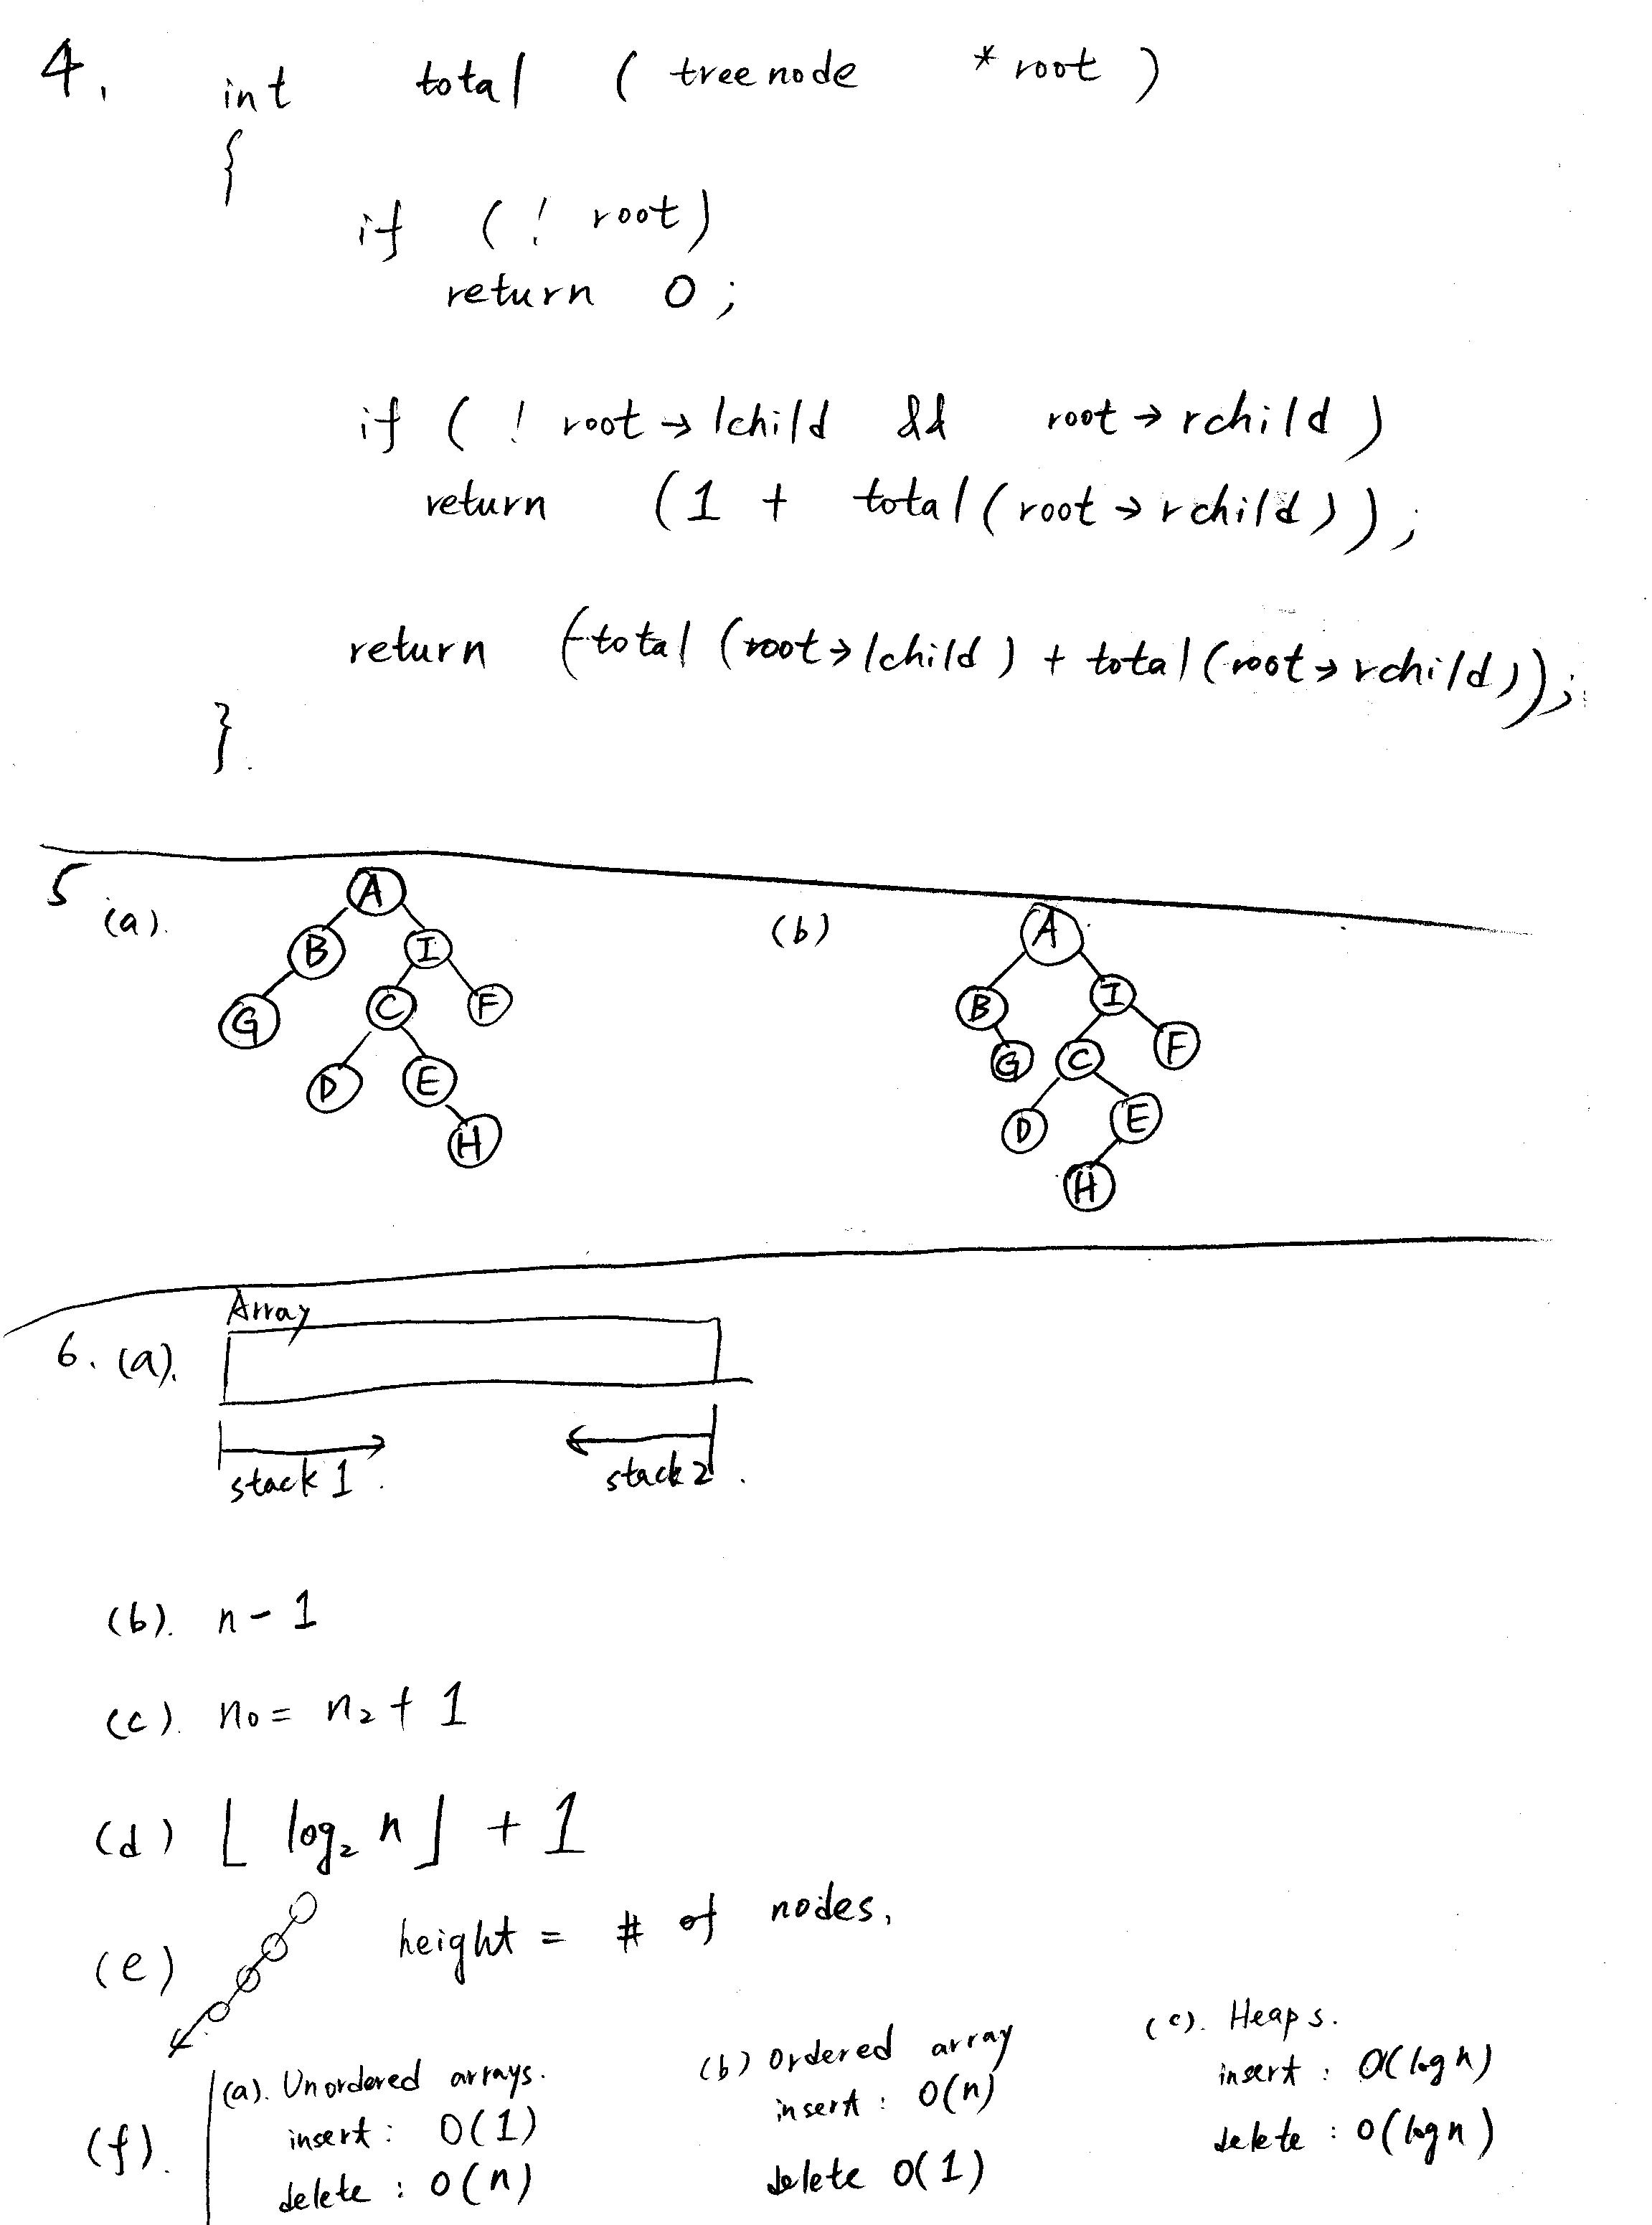 4. int total ( treenode * root )
{
if ( ! root)
return 0 ;
if ( ! root → lchild && root → rchild )
return (1 + total ( root → rchild ) ) ;
return ( total ( root → lchild ) + total ( root → rchild ) ) ;
}
5 (a).
A
B I
G C F
D E
H
(b)
A
B I
G C F
D E
H
6. (a).
Array
stack 1 .
stack 2 .
(b). n - 1
(c). n₀ = n₂ + 1
(d) ⌊ log₂ n ⌋ + 1
(e) height = # of nodes.
(f).
(a). Unordered arrays.
insert : O(1)
delete : O(n)
(b) Ordered array
insert : O(n)
delete O(1)
(c). Heaps.
insert : O(log n)
delete : O(log n)